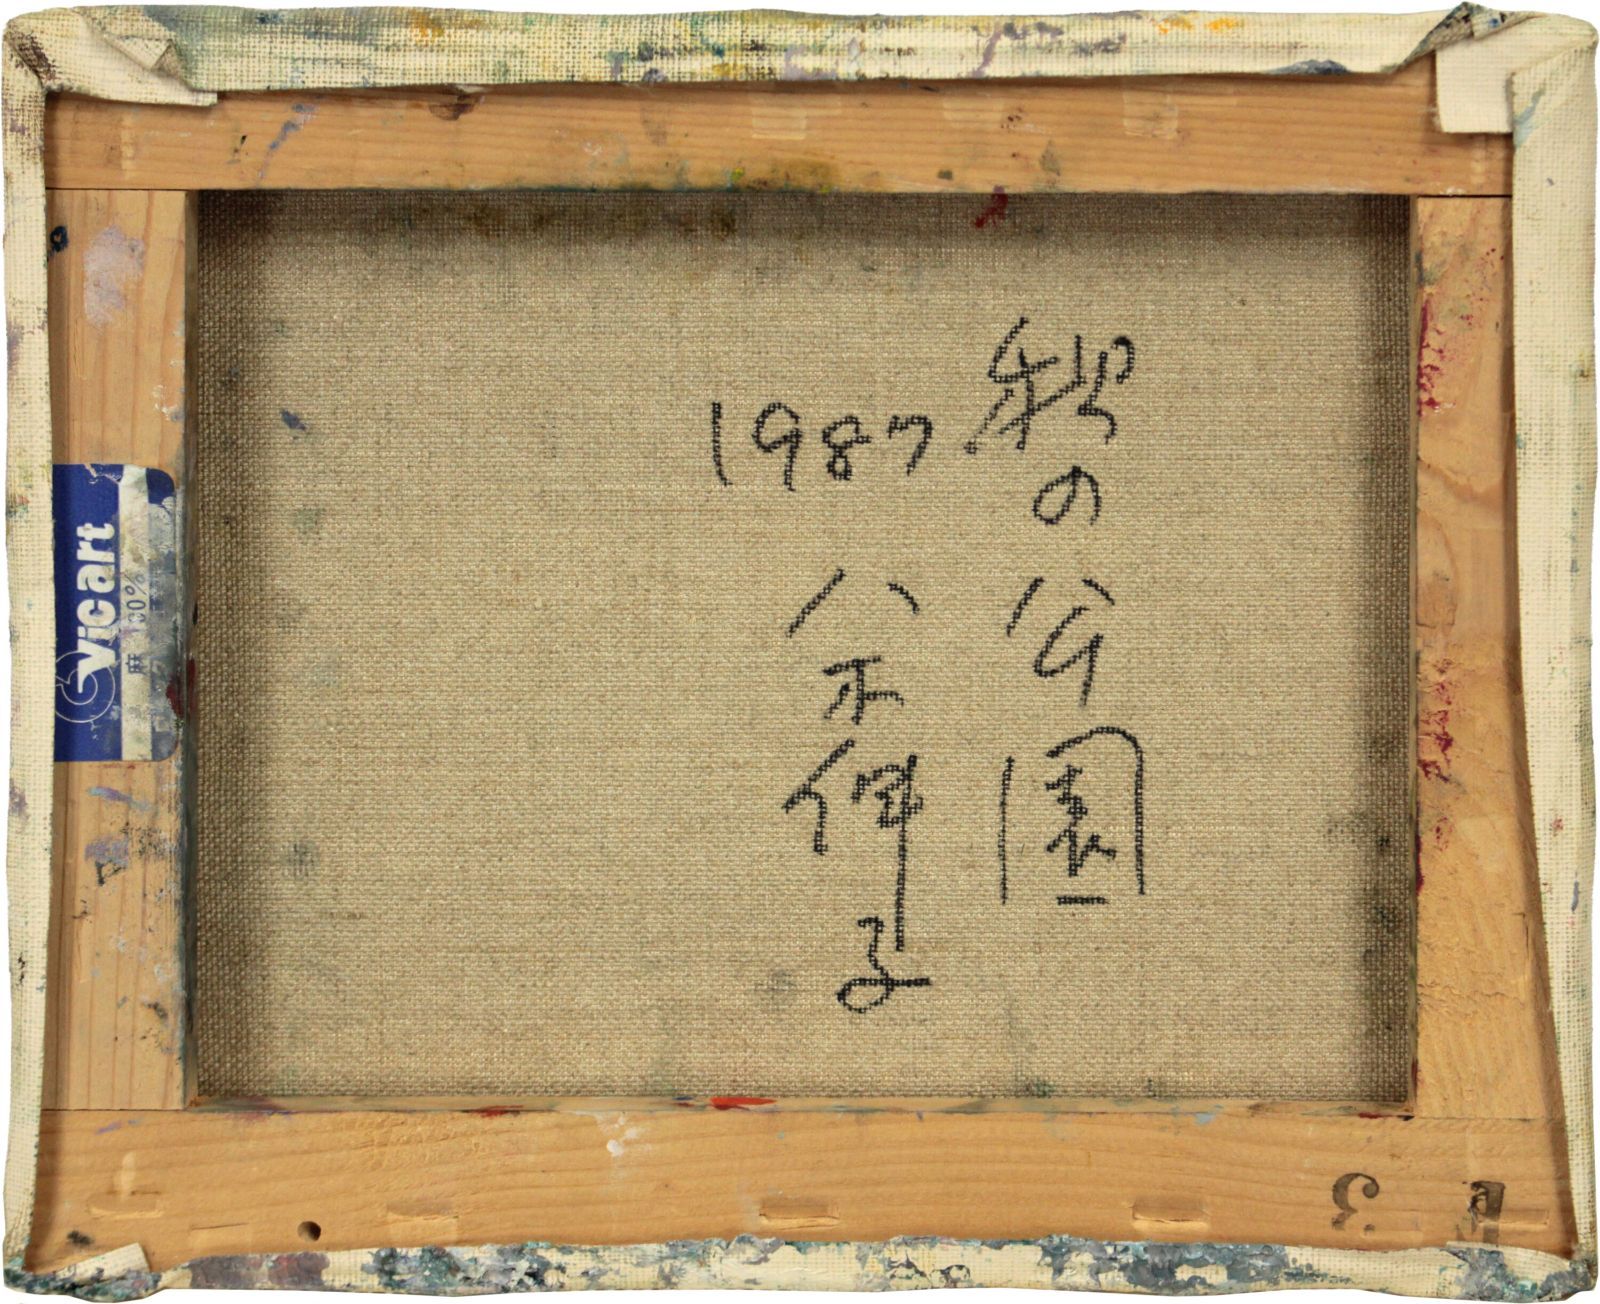 の公園
1987
八木伸子
vicart
麻 100%
F 3